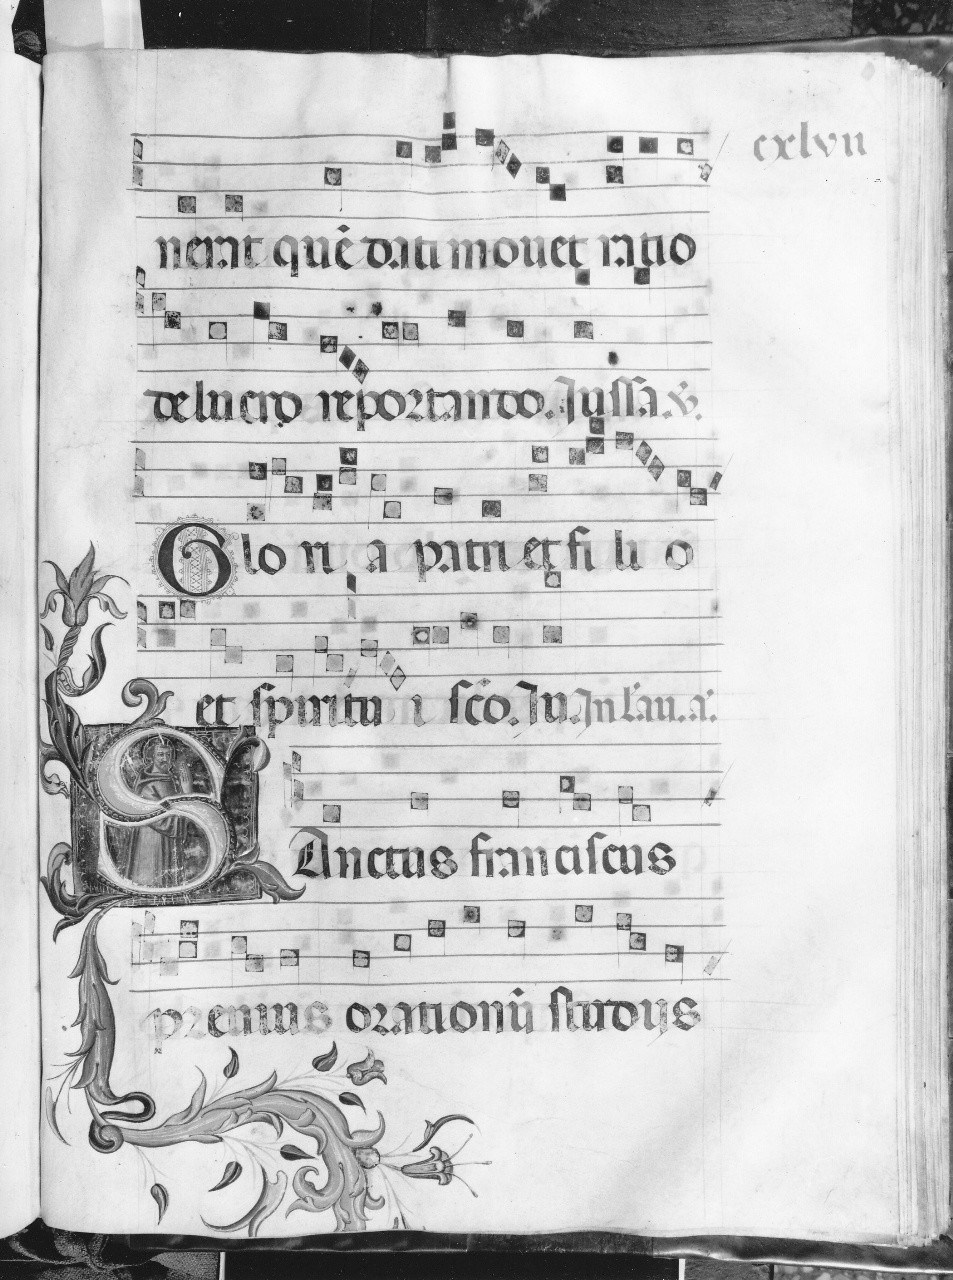 cxlvii
nerit quē dati mouet ratio
de lucro reportando. Iussa. v̇.
Glo ri a patri et fi li o
et spiritu i sc̄o. Iu. In lau. a.
SAnctus franciscus
preuius orationū studijs